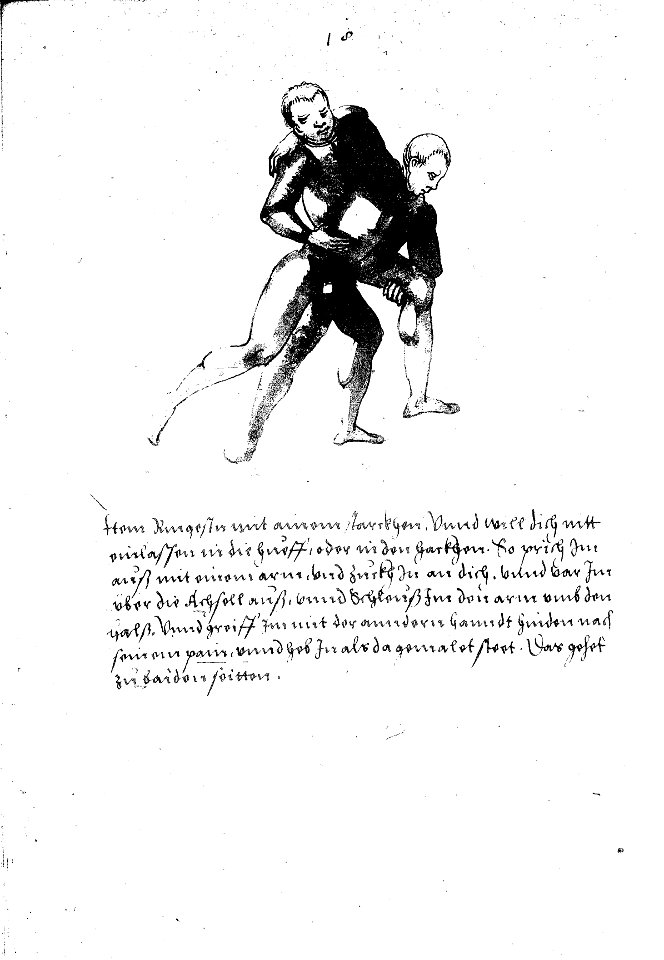 18
Item Ringestu mit ainem starckhen, Vnnd will dich nitt
einlassen in die hueff, oder in den hackhen. So prich Im
auß mit einem arm, vnd zuckh In an dich, vnnd var Im
vber die Achsell auß, vnnd Schleuß Im den arm vmb den
halß, Vnnd greiff Im mit der anndern hanndt hinden nach
seinem pain, vnnd heb In als da gemalet steet. Das gehet
zu baiden seitten.